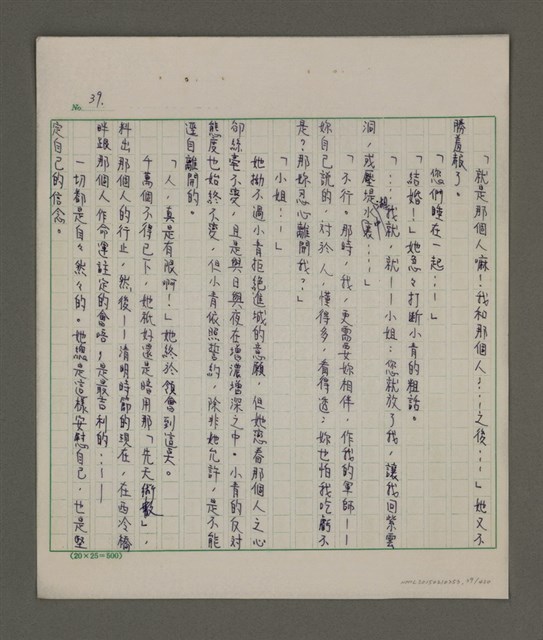 No. 39.
「就是那個人嘛!我和那個人…之後…」她又不
勝羞赧了。
「您們睡在一起…」
「結婚!」她急々打斷小青的粗話。
「…我就,就——小姐:您就放了我,讓我回紫雲
洞,或壓堤水裏…」
「不行。那時,我,更需要妳相伴,作我的軍師——
妳自己說的,對於人,懂得多,看得透;妳也怕我吃虧不
是?那妳忍心離開我?」
「小姐…」
她拗不過小青拒絕進城的意願,但她思春那個人之心
卻絲毫不變,且是與日與夜在濃濃增深之中。小青的反對
態度也始終不變,但小青依照誓約,除非她允許,是不能
逕自離開的。
「人,真是有限啊!」她終於領會到這點。
千萬個不得已下,她祇好還是暗用那「先天術數」,
料出那個人的行止,然後——清明時節的現在,在西冷橋
畔跟那個人作命運註定的會晤,是最吉利的…——
一切都是自々然々的。她總是這樣安慰自己,也是堅
定自己的信念。
(20×25=500)